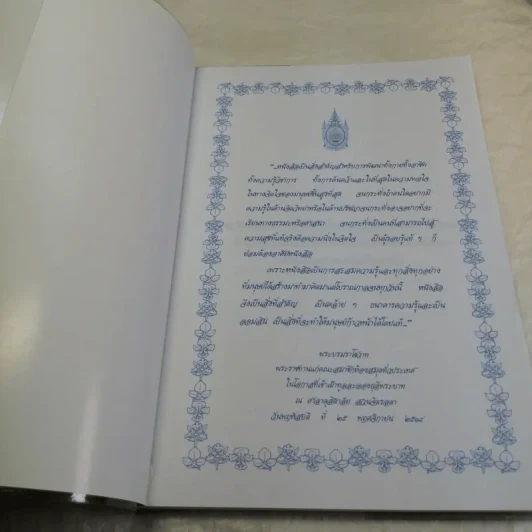 "...หนังสือเป็นสิ่งสำคัญสำหรับการพัฒนาทั้งกายทั้งอาชีพ
ทั้งความรู้วิชาการ ทั้งการค้นคว้าและในที่สุดในความพอใจ
ในทางจิตใจของมนุษย์ชั้นสูงที่สุด
ความรู้ในด้านจิตวิทยาหรือในด้านปรัชญาจนกระทั่งเอาอยากที่จะ
เรียนทางธรรมะหรือศาสนา จนกระทั่งเป็นคนที่สามารถไปสู่
ความสุขที่แท้จริงคือความนิ่งในจิตใจ เป็นผู้รอบรู้แท้ ๆ ก็
ย่อมต้องอาศัยหนังสือ
เพราะหนังสือเป็นการสะสมความรู้และทุกสิ่งทุกอย่าง
ที่มนุษย์ได้สร้างมาทำมาคิดมาแต่โบราณกาลจนทุกวันนี้ หนังสือ
จึงเป็นสิ่งที่สำคัญ เป็นคล้าย ๆ ธนาคารความรู้และเป็น
ออมสิน เป็นสิ่งที่จะทำให้มนุษย์ก้าวหน้าได้โดยแท้..."
พระบรมราโชวาท
พระราชทานแก่คณะสมาชิกห้องสมุดทั่วประเทศ
ในโอกาสที่เข้าเฝ้าทูลละอองธุลีพระบาท
ณ ศาลาดุสิดาลัย สวนจิตรลดา
วันพฤหัสบดี ที่ ๒๕ พฤศจิกายน ๒๕๑๔